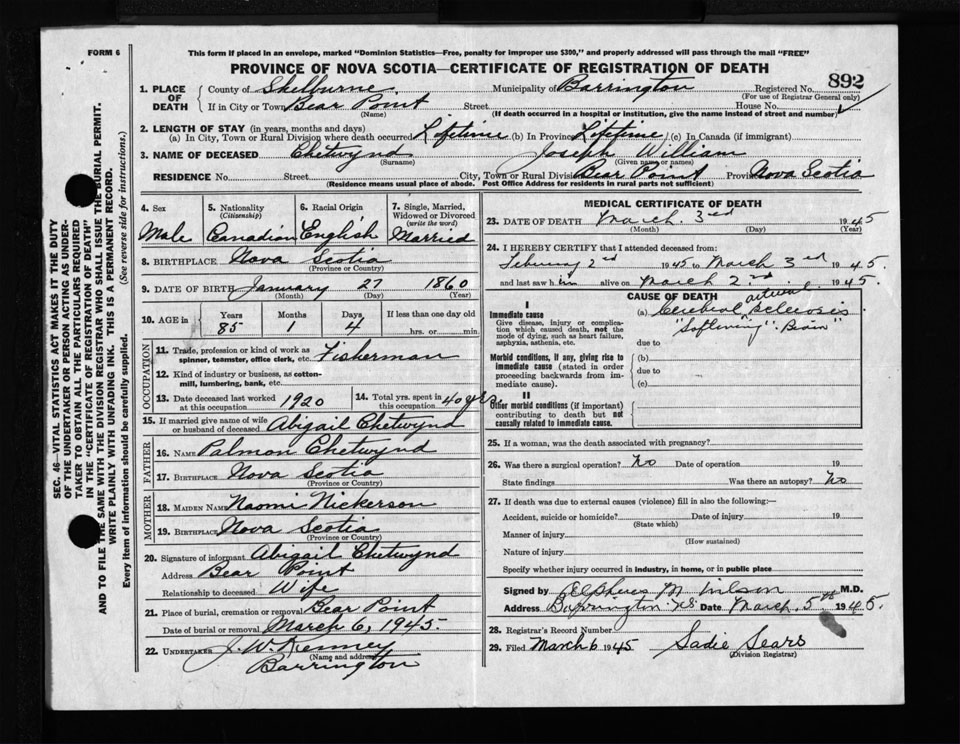 FORM 6
This form if placed in an envelope, marked "Dominion Statistics—Free, penalty for improper use $300," and properly addressed will pass through the mail "FREE"
PROVINCE OF NOVA SCOTIA—CERTIFICATE OF REGISTRATION OF DEATH
892
1. PLACE OF DEATH County of Shelburne Municipality of Barrington Registered No.
(For use of Registrar General only)
If in City or Town Bear Point Street House No.
(Name) (If death occurred in a hospital or institution, give the name instead of street and number)
2. LENGTH OF STAY (in years, months and days)
(a) In City, Town or Rural Division where death occurred Lifetime (b) In Province Lifetime (c) In Canada (if immigrant)
3. NAME OF DECEASED Chetwynd Joseph William
(Surname) (Given name or names)
RESIDENCE No. Street City, Town or Rural Division Bear Point Province Nova Scotia
(Residence means usual place of abode. Post Office Address for residents in rural parts not sufficient)
4. Sex 5. Nationality (Citizenship) 6. Racial Origin 7. Single, Married, Widowed or Divorced (write the word)
Male Canadian English Married
8. BIRTHPLACE Nova Scotia
(Province or Country)
9. DATE OF BIRTH January 27 1860
(Month) (Day) (Year)
10. AGE in Years Months Days If less than one day old
85 1 4 hrs. or min.
OCCUPATION
11. Trade, profession or kind of work as spinner, teamster, office clerk, etc. Fisherman
12. Kind of industry or business, as cotton-mill, lumbering, bank, etc.
13. Date deceased last worked at this occupation 1920 14. Total yrs. spent in this occupation 40 yrs.
15. If married give name of wife or husband of deceased Abigail Chetwynd
FATHER
16. NAME Palmon Chetwynd
17. BIRTHPLACE Nova Scotia
(Province or Country)
MOTHER
18. MAIDEN NAME Naomi Nickerson
19. BIRTHPLACE Nova Scotia
(Province or Country)
20. Signature of informant Abigail Chetwynd
Address Bear Point
Relationship to deceased Wife
21. Place of burial, cremation or removal Bear Point
Date of burial or removal March 6, 1945.
22. UNDERTAKER J. W. Kenney
(Name and address)
Barrington
MEDICAL CERTIFICATE OF DEATH
23. DATE OF DEATH March 3rd 1945
(Month) (Day) (Year)
24. I HEREBY CERTIFY that I attended deceased from:
February 2nd 1945 to March 3rd 1945.
and last saw him alive on March 2nd 1945.
CAUSE OF DEATH
I
Immediate cause
Give disease, injury or complication which caused death, not the mode of dying, such as heart failure, asphyxia, asthenia, etc.
(a) Cerebral arterial sclerosis
"Softening" Brain
due to
Morbid conditions, if any, giving rise to immediate cause (stated in order proceeding backwards from immediate cause).
(b)
due to
(c)
II
Other morbid conditions (if important) contributing to death but not causally related to immediate cause.
25. If a woman, was the death associated with pregnancy?
26. Was there a surgical operation? No Date of operation 19
State findings Was there an autopsy? No
27. If death was due to external causes (violence) fill in also the following:—
Accident, suicide or homicide? Date of injury 19
(State which)
Manner of injury
(How sustained)
Nature of injury
Specify whether injury occurred in industry, in home, or in public place
Signed by Alpheus M. Wilson M.D.
Address Barrington N.S. Date March 5th 1945.
28. Registrar's Record Number
29. Filed March 6 1945 Sadie Sears
(Division Registrar)
SEC. 46—VITAL STATISTICS ACT MAKES IT THE DUTY
OF THE UNDERTAKER OR PERSON ACTING AS UNDER-
TAKER TO OBTAIN ALL THE PARTICULARS REQUIRED
IN THE "CERTIFICATE OF REGISTRATION OF DEATH"
AND TO FILE THE SAME WITH THE DIVISION REGISTRAR WHO SHALL ISSUE THE BURIAL PERMIT.
WRITE PLAINLY WITH UNFADING INK. THIS IS A PERMANENT RECORD.
Every item of information should be carefully supplied. (See reverse side for instructions.)